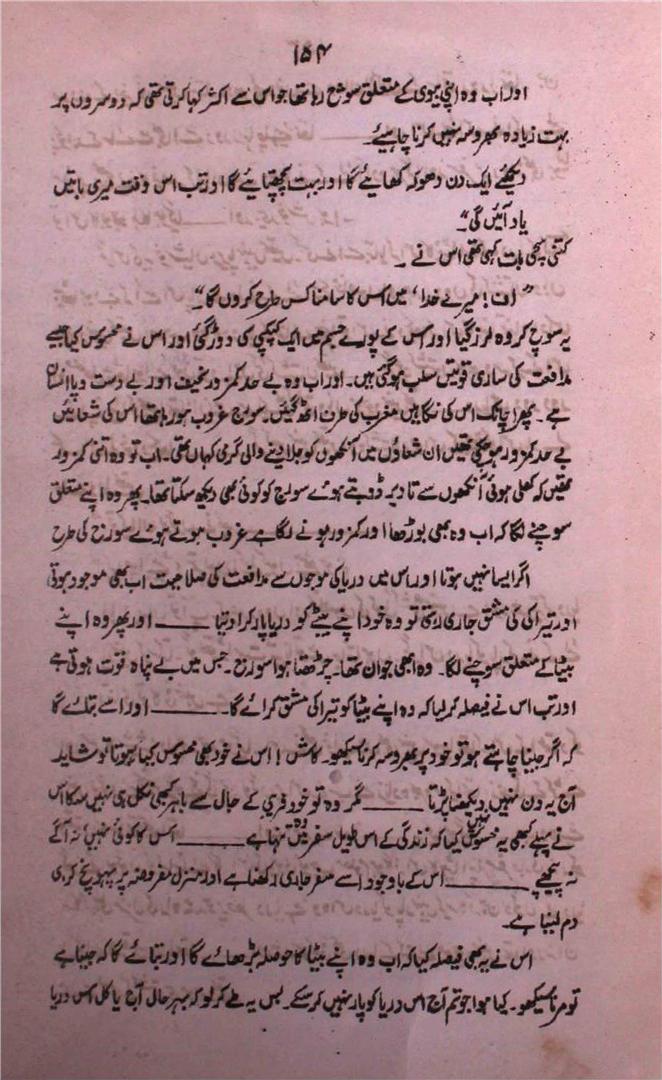 ۱۵۴
اور اب وہ اپنی بیوی کے متعلق سوچ رہا تھا جو اس سے اکثر کہا کرتی تھی کہ دوسروں پر
بہت زیادہ بھروسہ نہیں کرنا چاہیئے۔
دیکھئے ایک دن دھوکہ کھایئے گا اور بہت پچھتایئے گا اور تب اس وقت میری باتیں
یاد آئیں گی"
کتنی سچی بات کہی تھی اس نے ۔
"اُف! میرے خدا' میں اس کا سامنا کس طرح کروں گا"
یہ سوچ کر وہ لرز گیا اور اس کے پورے جسم میں ایک کپکپی کی دوڑ گئی اور اس نے محسوس کیا جیسے
مدافعت کی ساری قوتیں سلب ہو گئی ہیں۔ اور اب وہ بے حد کمزور نحیف اور بے دست و پا انسان
ہے۔ پھر اچانک اس کی نگاہیں مغرب کی طرف اٹھ گئیں۔ سورج غروب ہو رہا تھا اس کی شعائیں
بے حد کمزور ہو چکی تھیں ان شعاؤں میں آنکھوں کو جلا دینے والی گرمی کہاں تھی۔ اب تو وہ اتنی کمزور
تھیں کہ کھلی ہوئی آنکھوں سے تا دیر ڈوبتے ہوئے سورج کو کوئی بھی دیکھ سکتا تھا۔ پھر وہ اپنے متعلق
سوچنے لگا کہ اب وہ بھی بوڑھا اور کمزور ہونے لگا ہے غروب ہوتے ہوئے سورج کی طرح
اگر ایسا نہیں ہوتا اور اس میں دریا کی موجوں سے مدافعت کی صلاحیت اب بھی موجود ہوتی
اور تیراکی کی مشق جاری رہتی تو وہ خود اپنے بیٹے کو دریا پار کرا دیتا ——— اور پھر وہ اپنے
بیٹا کے متعلق سوچنے لگا۔ وہ ابھی جوان تھا۔ چڑھتا ہوا سورج۔ جس میں بے پناہ قوت ہوتی ہے
اور تب اس نے فیصلہ کر لیا کہ وہ اپنے بیٹا کو تیراکی مشق کرائے گا۔ ——— اور اسے بتلائے گا
کہ اگر جینا چاہتے ہو تو خود پر بھروسہ کرنا سیکھو۔ کاش! اس نے خود بھی محسوس کیا ہوتا تو شاید
آج یہ دن نہیں دیکھنا پڑتا ——— مگر وہ تو خود فریبی کے جال سے باہر کبھی نکل ہی نہیں سکا اس
نے پہلے کبھی یہ محسوس نہیں کیا کہ زندگی کے اس طویل سفر میں وہ تنہا ہے ——— اس کا کوئی نہیں نہ آگے
نہ پیچھے ——— اس کے باوجود اسے سفر جاری رکھنا ہے اور منزل مفروضہ پر پہونچ کر ہی
دم لینا ہے۔
اس نے یہ بھی فیصلہ کیا کہ اب وہ اپنے بیٹا کا حوصلہ بڑھائے گا اور بتائے گا کہ جینا ہے
تو مرنا سیکھو۔ کیا ہوا جو تم آج اس دریا کو پار نہیں کر سکے۔ بس یہ طے کر لو کہ بہر حال آج یا کل اس دریا